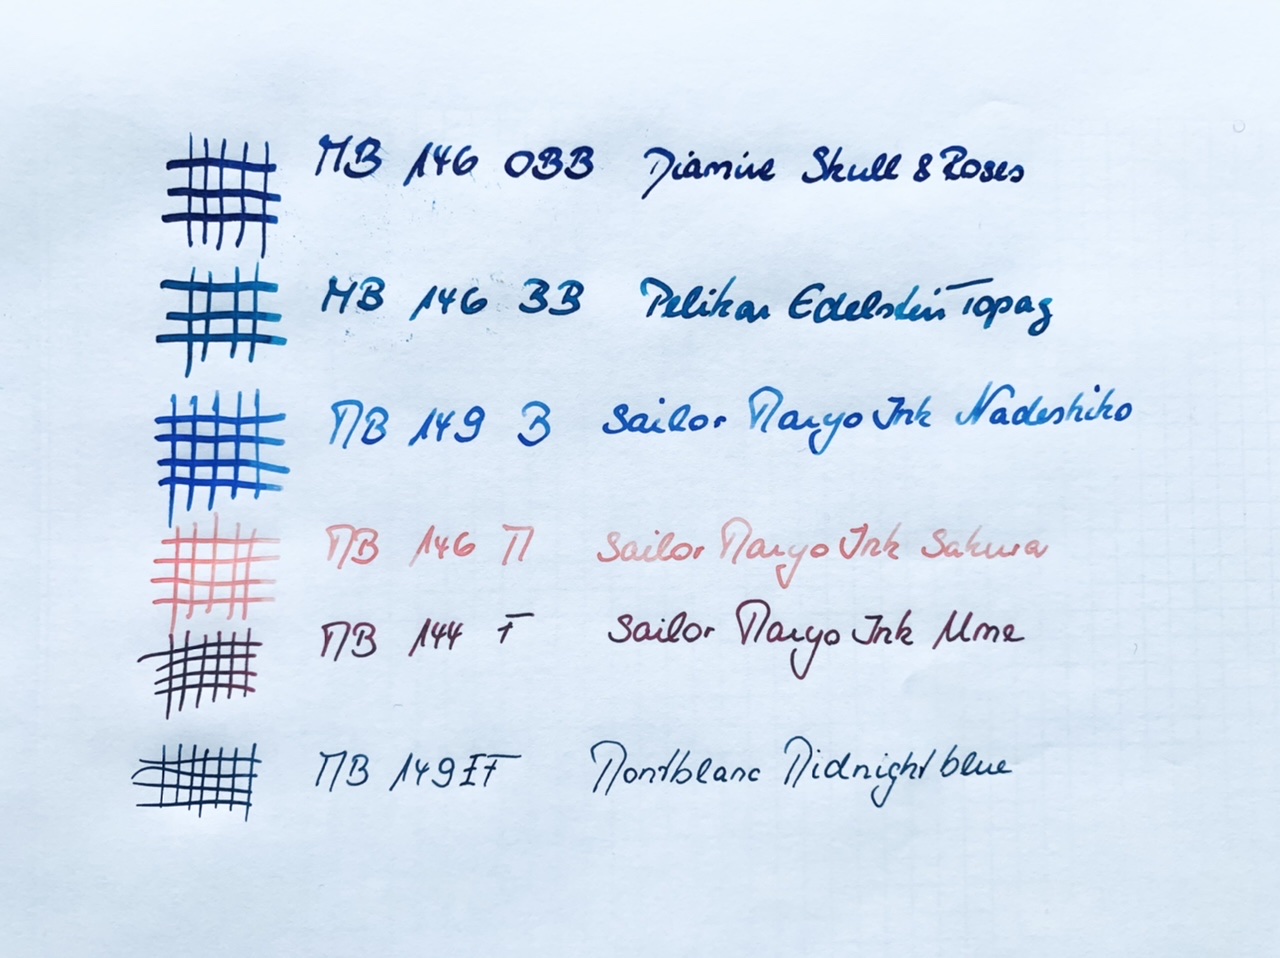 MB 146 OBB Diamine Skull & Roses
MB 146 BB Pelikan Edelstein Topaz
MB 149 B Sailor Manyo Ink Nadeshiko
MB 146 M Sailor Manyo Ink Sakura
MB 144 F Sailor Manyo Ink Ume
MB 149 EF Montblanc Midnight blue